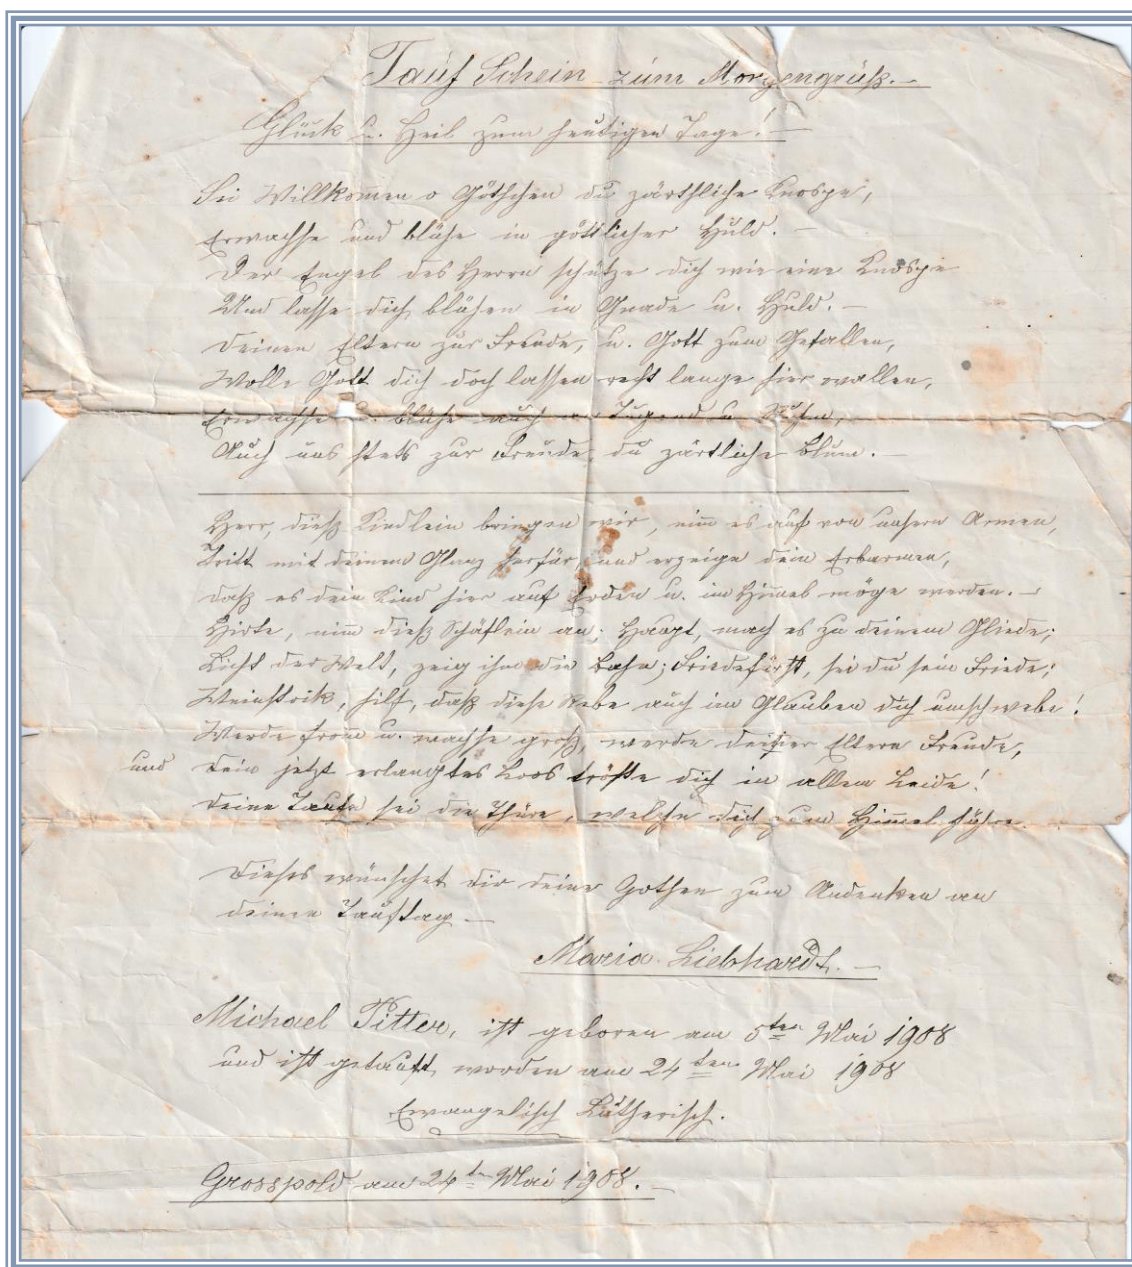 Tauf Schein zum Morgengruß.—
Glück u. Heil zum heutigen Tage!—
Sei Willkomen o Göthchen du zärthliche Knospe,
Erwachse und blühe in göttlicher Huld.—
Der Engel des Herrn schütze dich wie eine Knospe
Und lasse dich blühen in Gnade u. Huld.—
Deinen Eltern zur Freude, u. Gott zum Gefallen,
Wolle Gott dich doch lassen recht lange hier wallen,
Erwachse u. blühe auch an Tugend u.
Auch uns stets zur Freude, du zärtliche Blum.—
Herr, dieß Kindlein bringen wir, nim es auf von unsern Armen,
Tritt mit deinem Glanz herfür, und erzeige dein Erbarmen,
daß es dein Kind hier auf Erden u. im Himel möge werden.—
Hirte, nim dieß Schäflein an; Haupt, mach es zu deinem Gliede;
Licht der Welt, zeig ihm die Bahn; Friedefürst, sei du sein Friede;
Weinstock, hilf, daß diese Rebe auch im Glauben dich umschwebe!
Werde from u. wachse groß, werde deiner Eltern Freude,
und dein jetzt erlangtes Loos tröste dich in allem Leide!
Deine Taufe sei die Thüre, welche dich zum Himel führe.
Dieses wünschet dir deine Gothen zum Andenken an
deinen Tauftag.—
Maria Liebhardt.—
Michael Pitter, ist geboren am 5ten Mai 1908
und ist getauft worden am 24ten Mai 1908
Ewangelisch Lutherisch.
Grosspold am 24ten Mai 1908.—